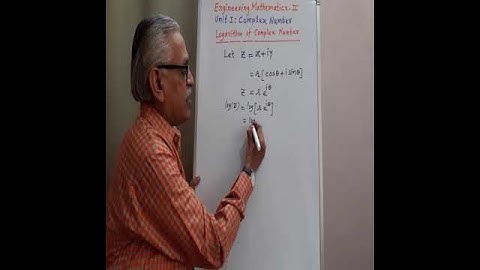 Engineering Mathematics-II
Unit I: Complex Number
Logarithm of Complex Number
Let z = x+iy
= r[cosθ+i sinθ]
z = r e^{iθ}
log(z) = log[r e^{iθ}]
= log